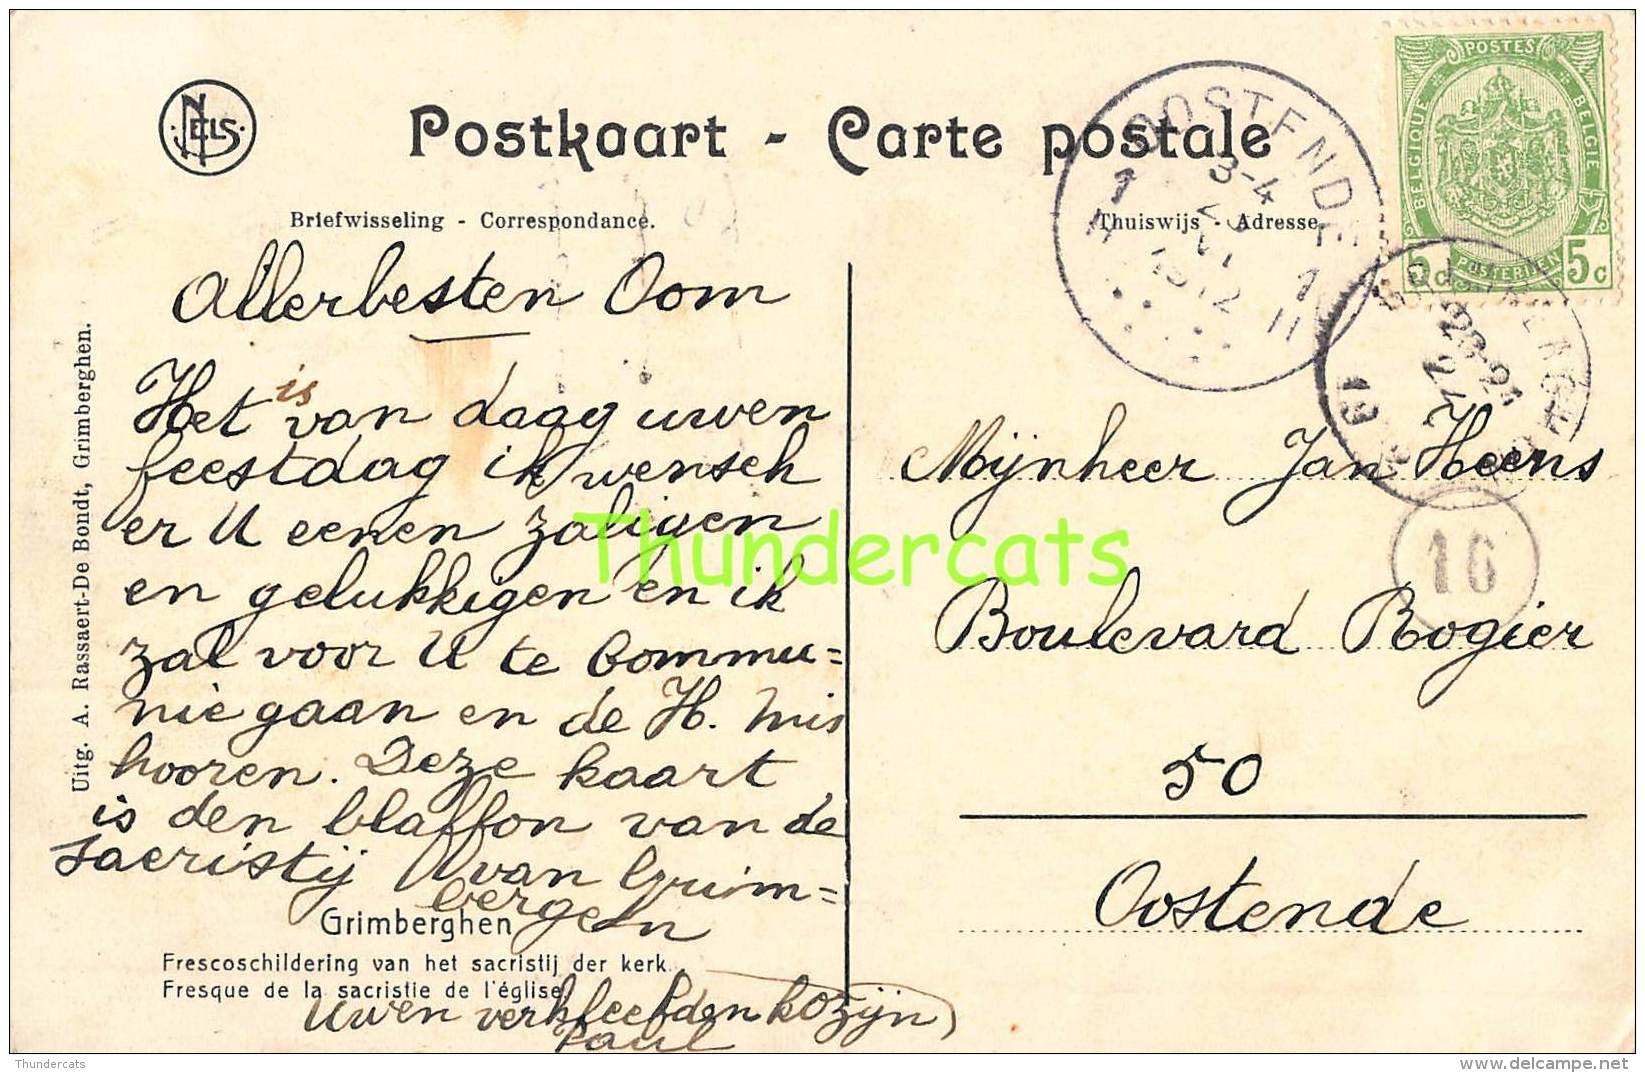 NELS
Postkaart - Carte postale
Briefwisseling - Correspondance.
Thuiswijs - Adresse
POSTES
BELGIQUE
BELGIË
5c POSTERIJEN 5c
OOSTENDE
3-4
VI
1912
16
Allerbesten Oom
Het is van daag uwen
feestdag ik wensch
er U eenen zaligen
en gelukkigen en ik
zal voor U te Commu=
nie gaan en de H. mis
hooren. Deze kaart
is den blaffon van de
sacristij van Grim=
bergen
Uwen verkleefden kozijn
Paul
Mijnheer Jan Heens
Boulevard Rogier
50
Oostende
Grimberghen
Frescoschildering van het sacristij der kerk.
Fresque de la sacristie de l'église
Uitg. A. Rassaert-De Bondt, Grimberghen.
Thundercats
Thundercats
www.delcampe.net